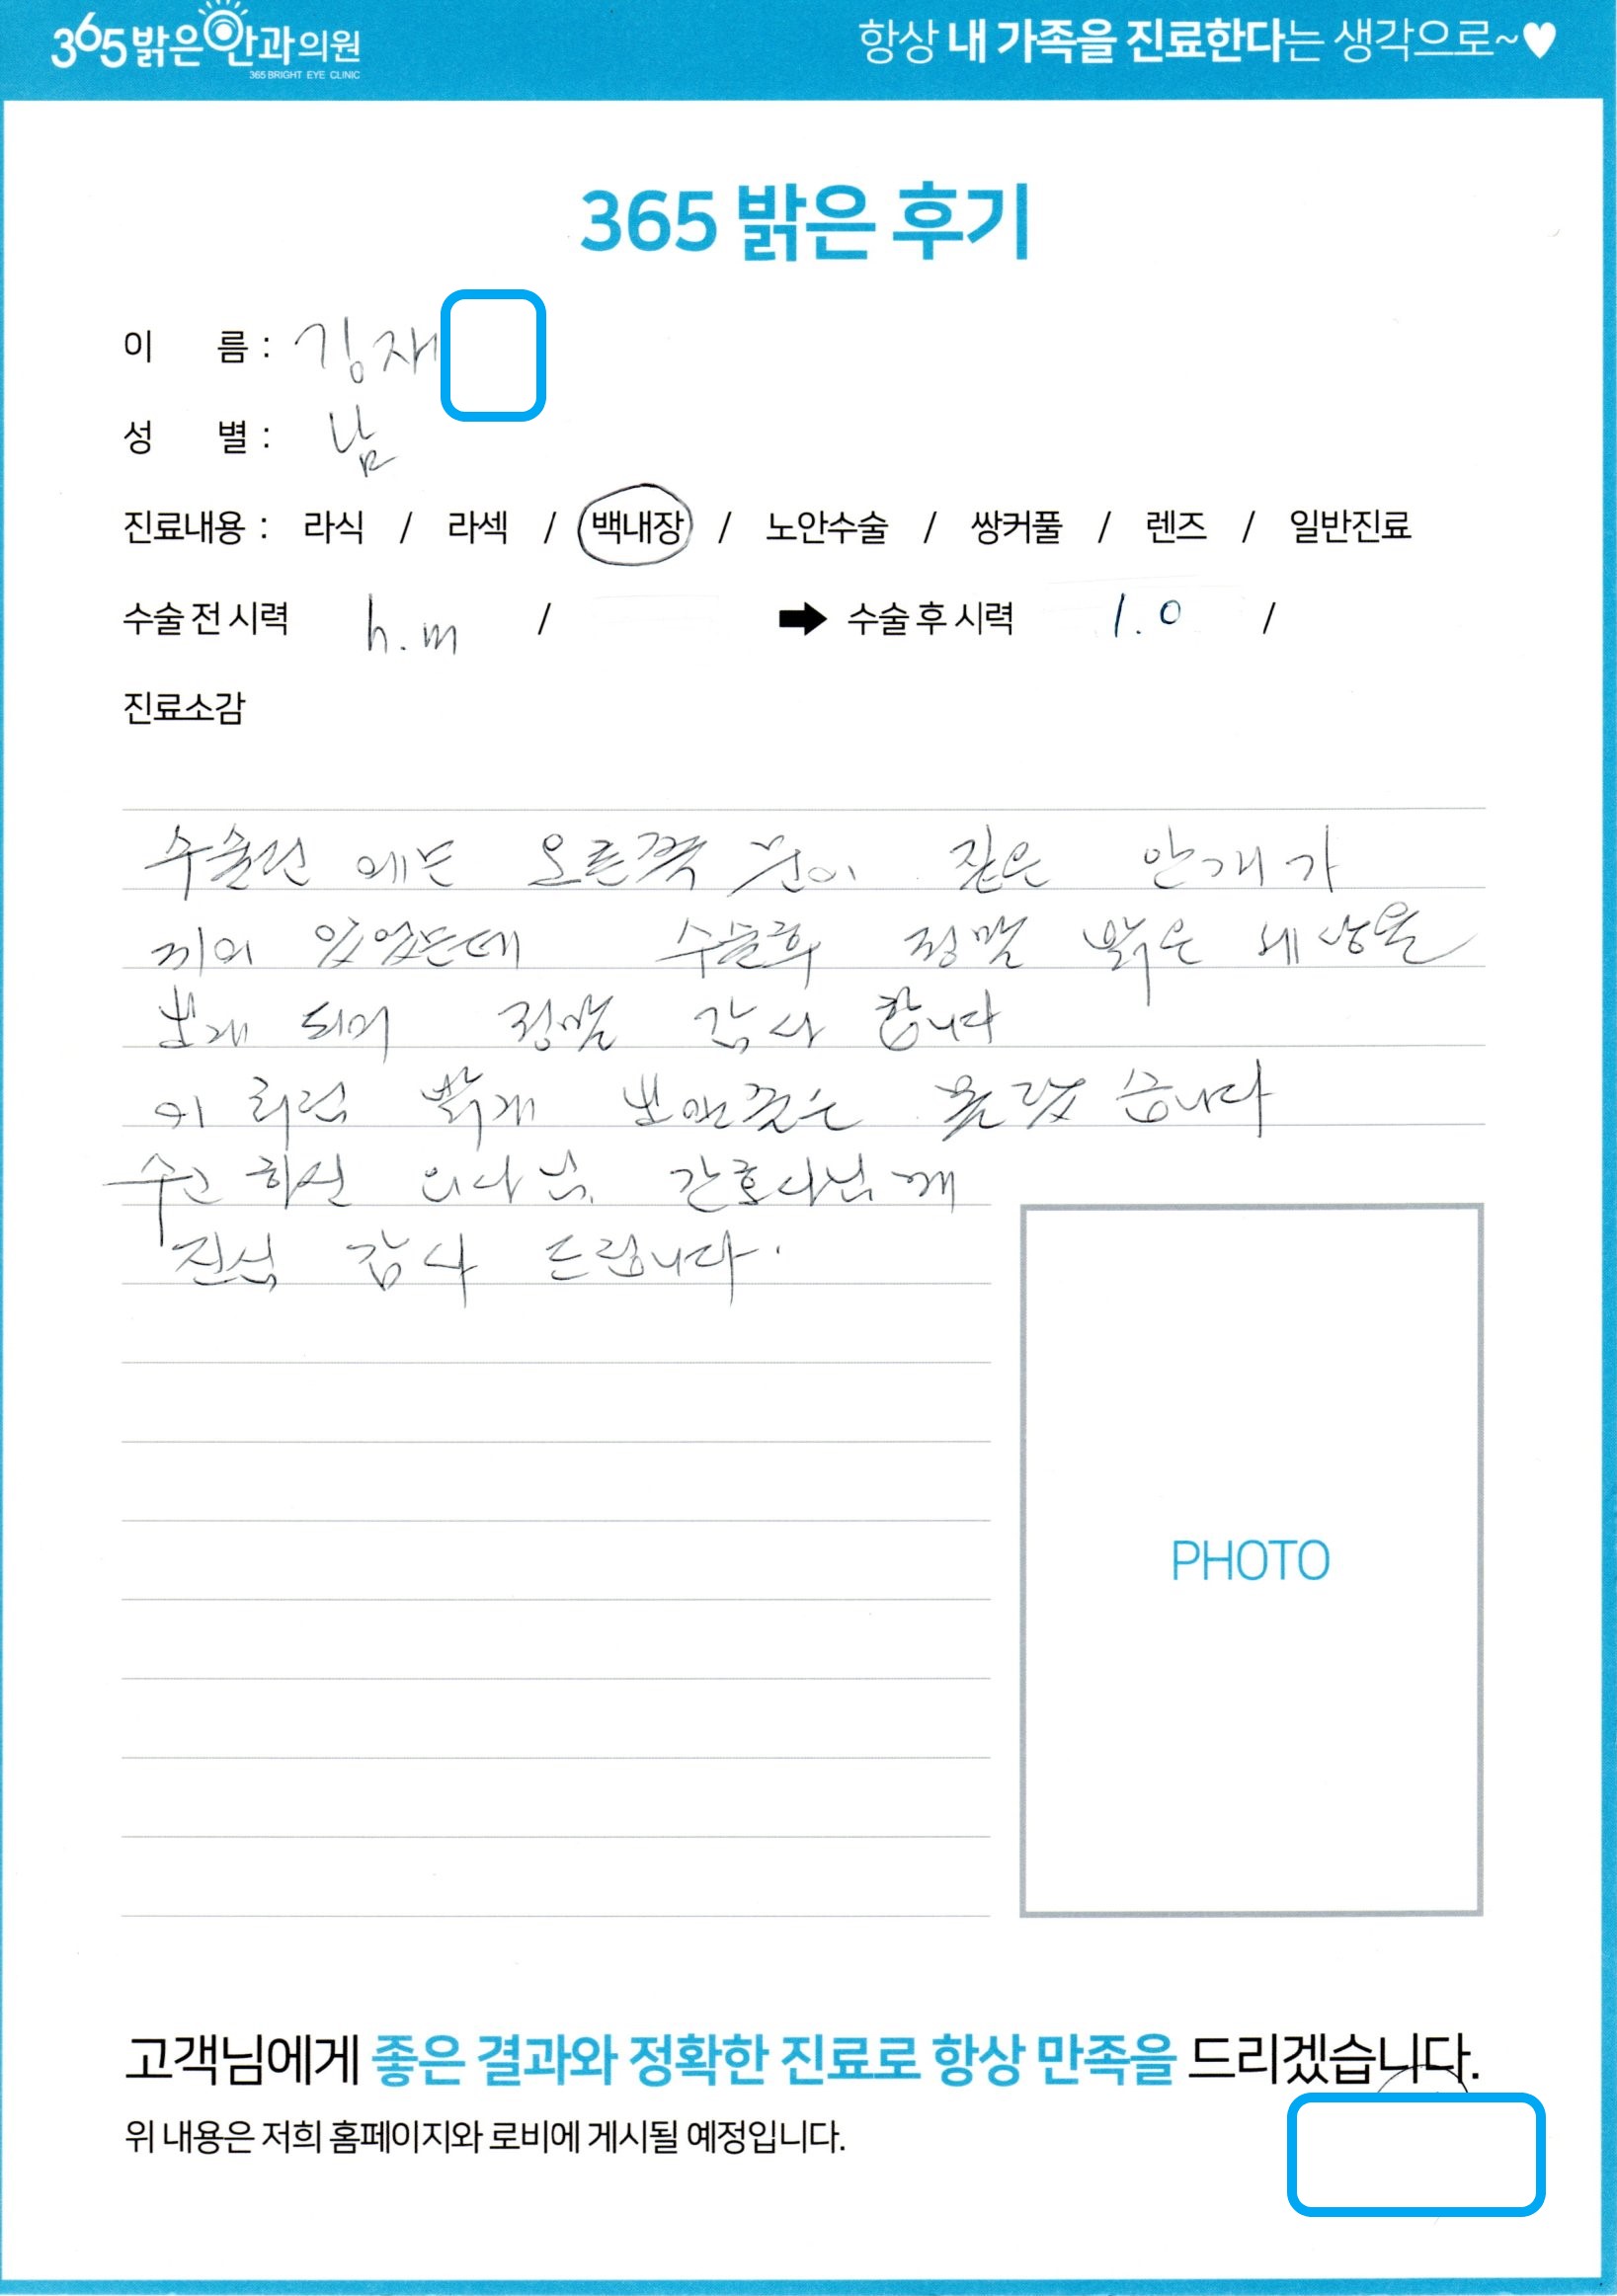 365밝은안과의원
365 BRIGHT EYE CLINIC
항상 내 가족을 진료한다는 생각으로~♥
365 밝은 후기
이 름 : 김재
성 별 : 남
진료내용 : 라식 / 라섹 / 백내장 / 노안수술 / 쌍커풀 / 렌즈 / 일반진료
수술 전 시력 h.m / ➡ 수술 후 시력 1.0 /
진료소감
수술전 에는 오른쪽 눈이 짙은 안개가
끼의 있었는데 수술후 정말 밝은 세상을
보게 되어 정말 감사 합니다
이 처럼 밝게 보일줄은 몰랐습니다
수고 하신 의사님, 간호사님께
진심 감사 드립니다.
PHOTO
고객님에게 좋은 결과와 정확한 진료로 항상 만족을 드리겠습니다.
위 내용은 저희 홈페이지와 로비에 게시될 예정입니다.